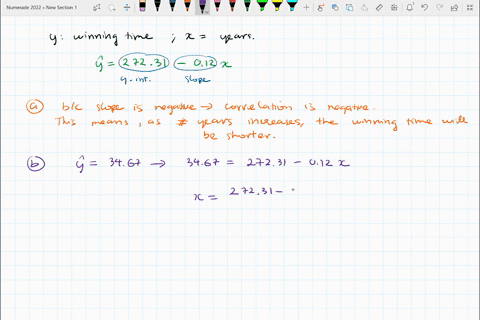 Numerade 2022 > New Section 1
y: winning time ; x = years.
ŷ = 272.31 - 0.12 x
y-int. slope
a b/c slope is negative → correlation is negative.
This means, as # years increases, the winning time will
be shorter.
b ŷ = 34.67 → 34.67 = 272.31 - 0.12 x
x = 272.31 -